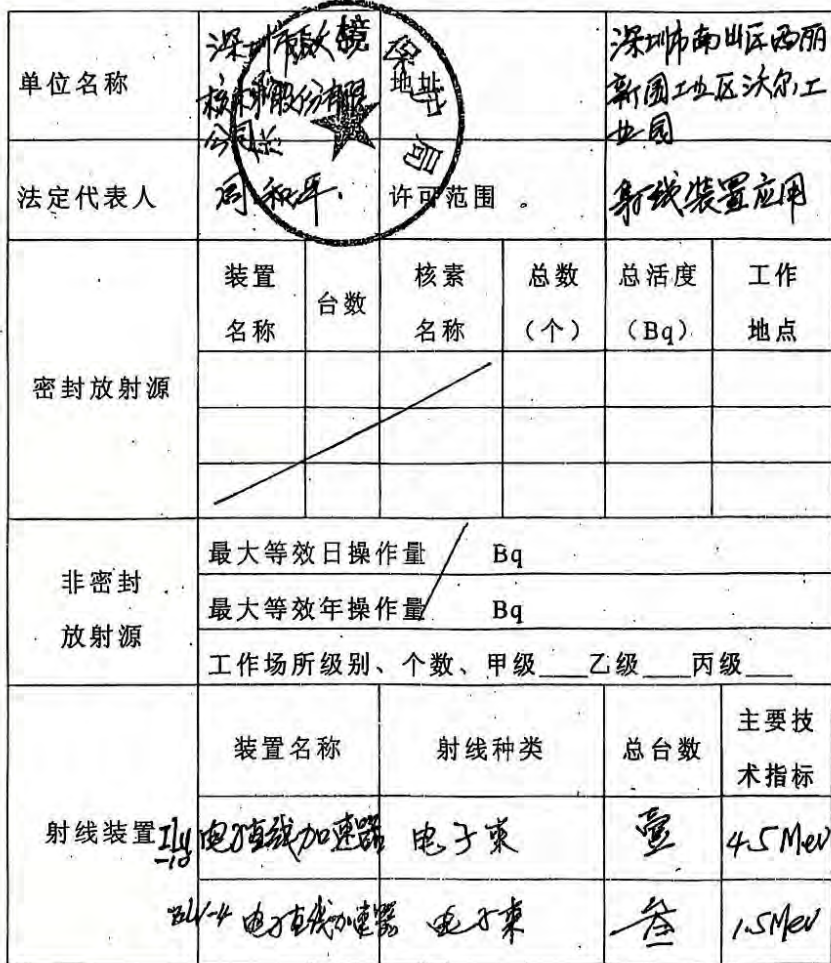 单位名称 深圳市沃尔核材股份有限公司 地址 深圳市南山区西丽新围工业区沃尔工业园
法定代表人 周和平. 许可范围 射线装置应用
密封放射源 装置名称 台数 核素名称 总数（个） 总活度（Bq） 工作地点
非密封放射源 最大等效日操作量 / Bq
最大等效年操作量 Bq
工作场所级别、个数、甲级___乙级___丙级___
射线装置 装置名称 射线种类 总台数 主要技术指标
电子直线加速器 电子束 壹 4.5 Mev
ELV-4 电子直线加速器 电子束 叁 1.5 Mev
保护局